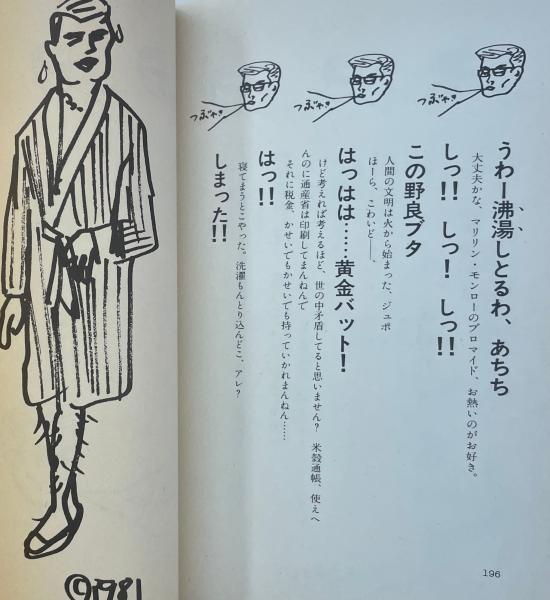 うわー沸湯しとるわ、あちち
大丈夫かな、マリリン・モンローのブロマイド、お熱いのがお好き。
しっ!! しっ! しっ!!
この野良ブタ
人間の文明は火から始まった、ジュポ
ほーら、こわいど——、
はっはは……黄金バット!
けど考えれば考えるほど、世の中矛盾してると思いません? 米穀通帳、使えへ
んのに通産省は印刷してまんねんで
それに税金、かせいでもかせいでも持っていかれまんねん……
はっ!!
寝てまうとこやった。洗濯もんとり込んどこ、アレ?
しまった!!
つぶやき
つぶやき
つぶやき
196
©1981